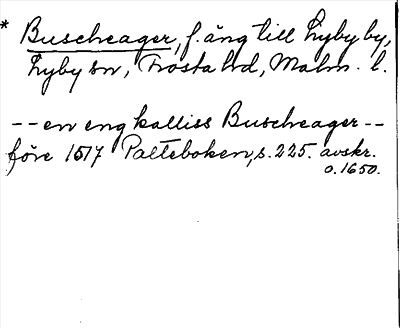 * Buscheager, f. äng till Hyby by,
Hyby sn, Frosta hd, Malm. l.
-- en eng kalliss Buscheager --
före 1517 Palteboken, s. 225. avskr.
o. 1650.